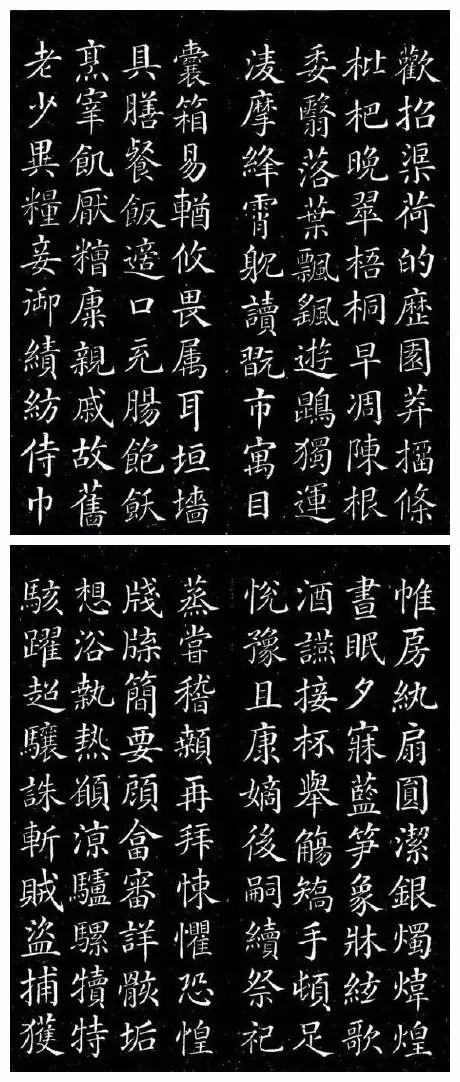 歡招渠荷的歷園莽擂條
枇杷晚翠梧桐早凋陳根
委翳落葉飄颻遊鵾獨運
淩摩絳霄躭讀翫市寓目
囊箱易輶攸畏属耳垣墻
具膳餐飯適口充腸飽飫
烹宰飢厭糟糠親戚故舊
老少異糧妾御績紡侍巾
帷房紈扇圓潔銀燭煒煌
晝眠夕寐藍笋象牀絃歌
酒讌接杯舉觴矯手頓足
悅豫且康嫡後嗣續祭祀
蒸嘗稽顙再拜悚懼恐惶
牋牒簡要頋畣審詳骸垢
想浴執熱願涼驢騾犢特
駭躍超驤誅斬賊盜捕獲